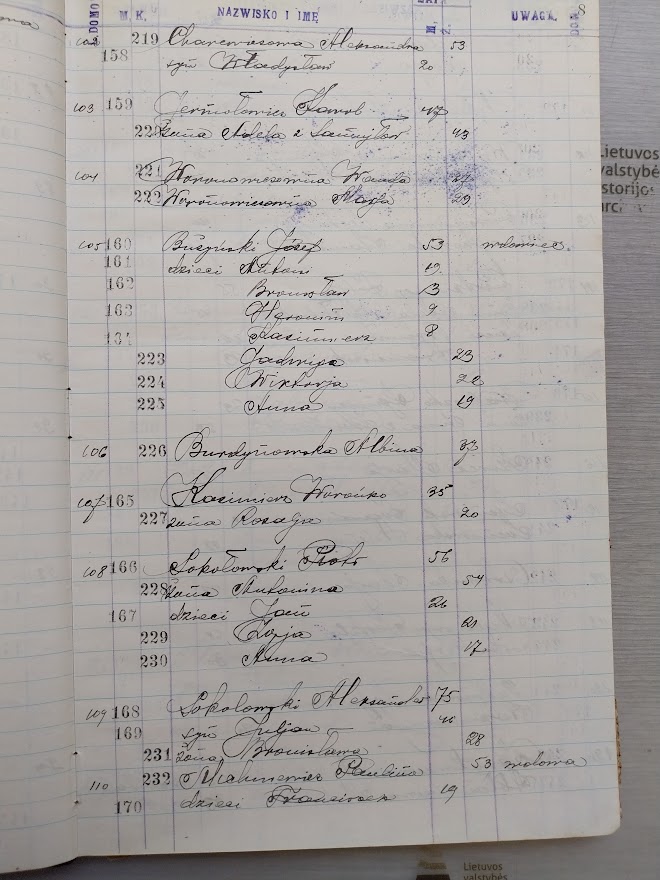 8
DOMO M. K. NAZWISKO I IMĘ LAT M. Ż. UWAGA.
102 219 Charewiczowa Aleksandra 53
158 syn Władysław 20
103 159 Jermołowicz Karol 47
220 żona Adela z Samujłów 43
104 221 Woronowiczówna Wanda
222 Woronowiczówna Marja 29
105 160 Buszyński Józef 53 wdowiec.
161 dzieci Antoni 19
162 Bronisław 13
163 Heronim 9
164 Kazimierz 8
223 Jadwiga 23
224 Wiktorja 22
225 Anna 19
106 226 Burdynowska Albina 37
107 165 Kazimierz Worońko 35
227 żona Rozalja 20
108 166 Sokołowski Piotr 56
228 żona Antonina 54
167 dzieci Jan 26
229 Zofja 21
230 Anna 17
109 168 Sokołowski Aleksander 75
169 syn Juljan
231 żona Bronisława 28
110 232 Paulina 53 wdowa
170 dzieci Franciszek 19
Lietuvos
valstybė
istorijos
arc
Lietuvos
valstybės